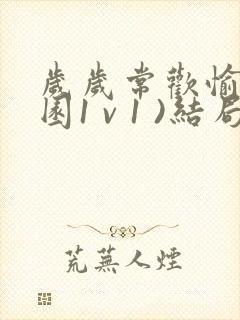 歲歲常歡愉
園1v1)結局
荒蕪人煙